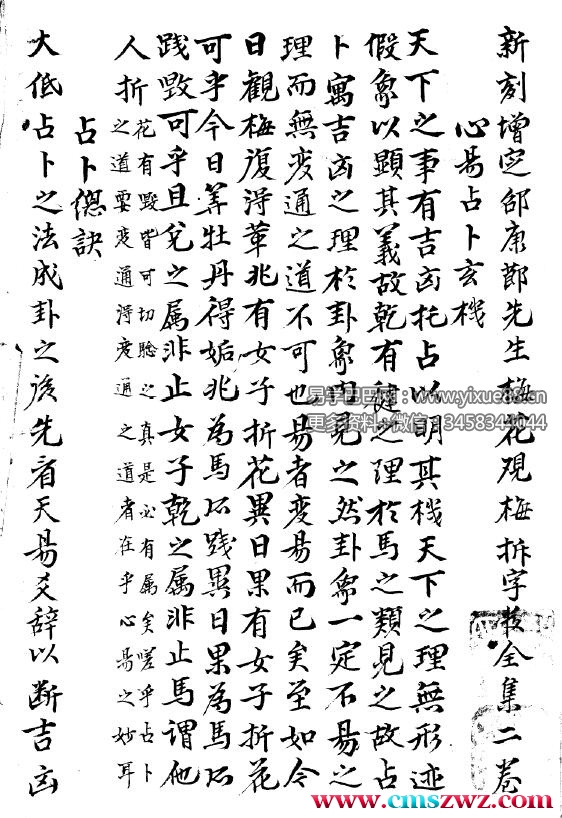 新刻增定邵康節先生梅花观梅拆字数全集二巻
心易占卜玄機
天下之事有吉凶托占以明其機天下之理無形迹
假象以顯其義故乾有健之理於馬之類見之故占
卜寓吉凶之理於卦象内見之然卦象一定不易之
理而無变通之道不可也易者变易而已矣至如今
日觀梅復得革兆有女子折花異日果有女子折花
可乎今日筭牡丹得姤兆為馬所践異日果為馬所
践毀可乎且兌之属非止女子乾之属非止馬謂他
人折花有毀皆可切騐之真是必有属矣嗟乎占卜
之道要变通得变通之道者在乎心易之妙耳
占卜總訣
大低占卜之法成卦之後先看天易爻辞以断吉凶
www.yixue88.cn
更多资料+微信13458344044
www.cmszwz.com